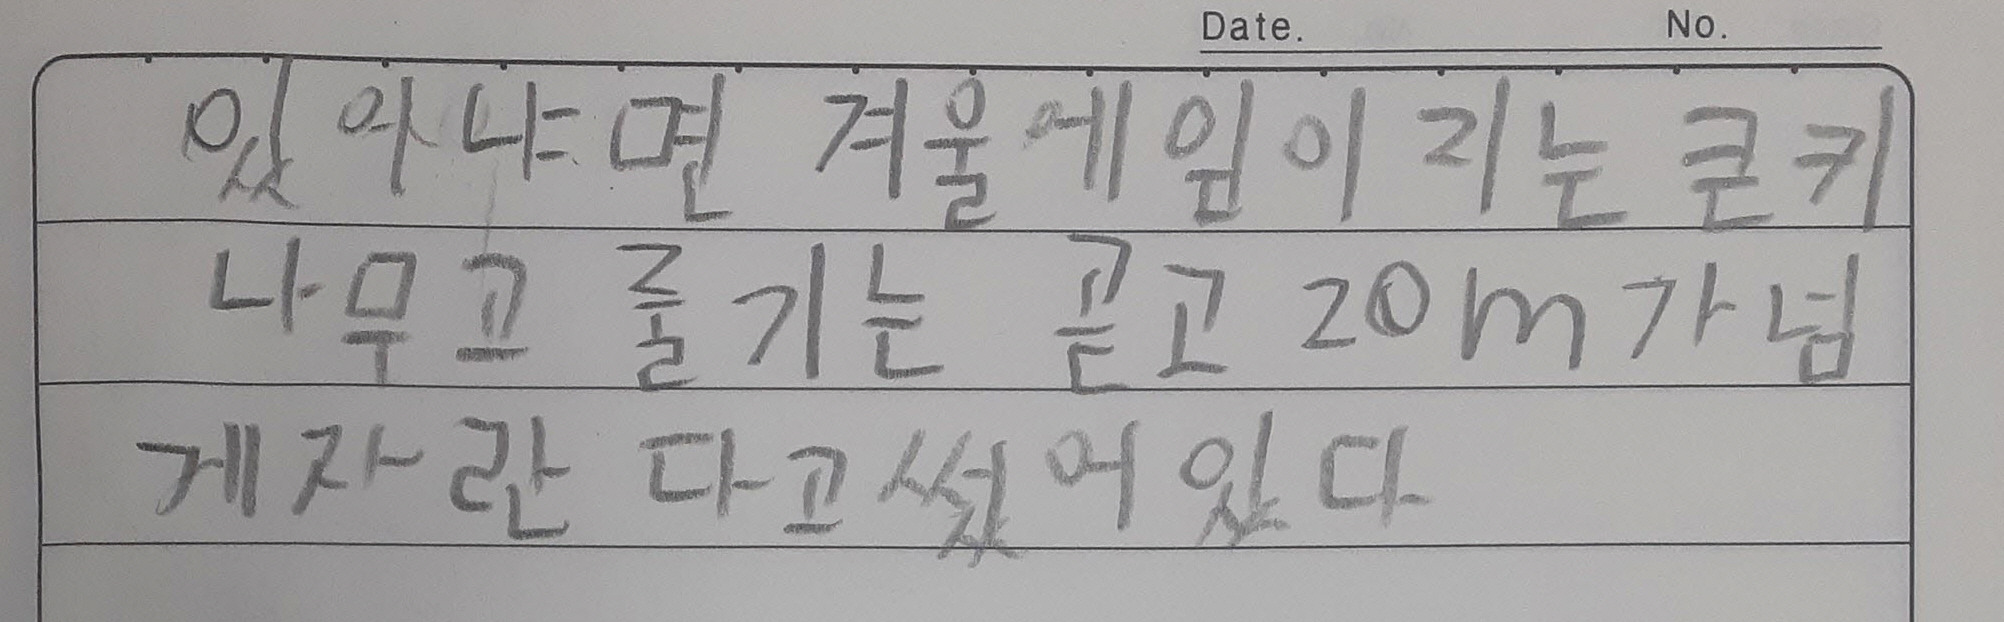 Date. No.
있아냐면 겨울에잎이 지는 큰키
나무고 줄기는 곧고 20m가넘
게자란 다고썼어있다